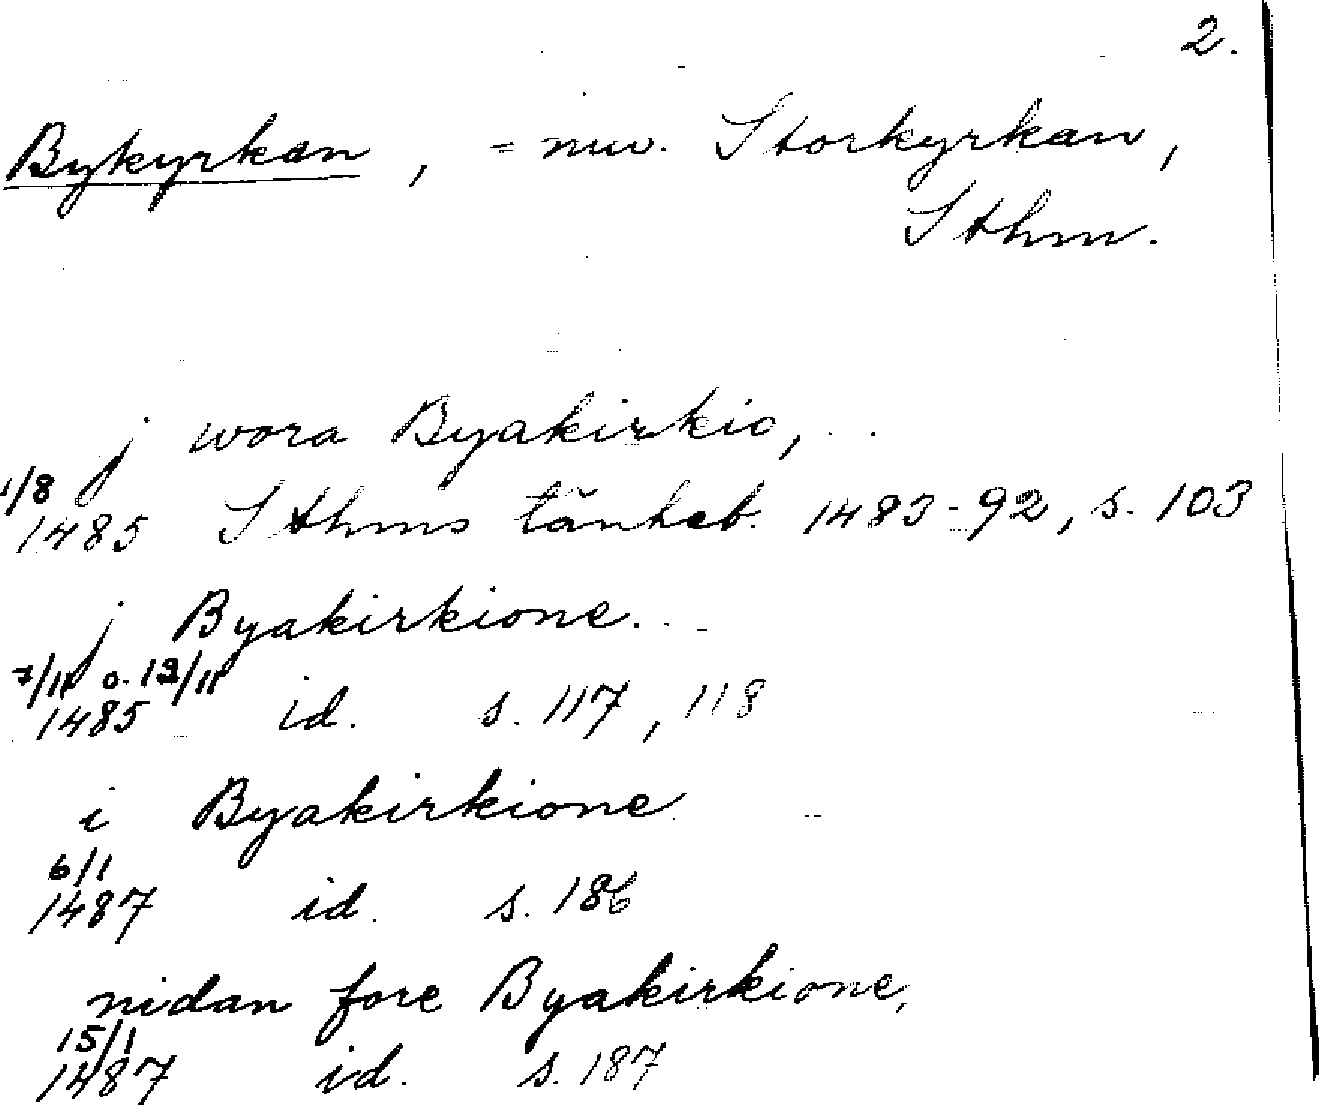 2.
Bykyrkan, = nuv. Storkyrkan,
Sthm.
j wora Byakirkio, ..
1/8
1485 Sthms tänkeb. 1483-92, s. 103
j Byakirkione...
7/11 o. 12/11
1485 id. s. 117, 118
i Byakirkione
6/1
1487 id. s. 186
nidan fore Byakirkione,
15/1
1487 id. s. 187